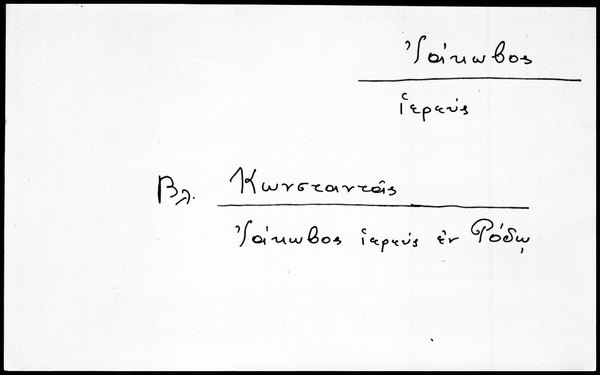 Ἰάκωβος
ἱερεύς
Βλ. Κωνσταντᾶς
Ἰάκωβος ἱερεύς ἐν Ρόδῳ